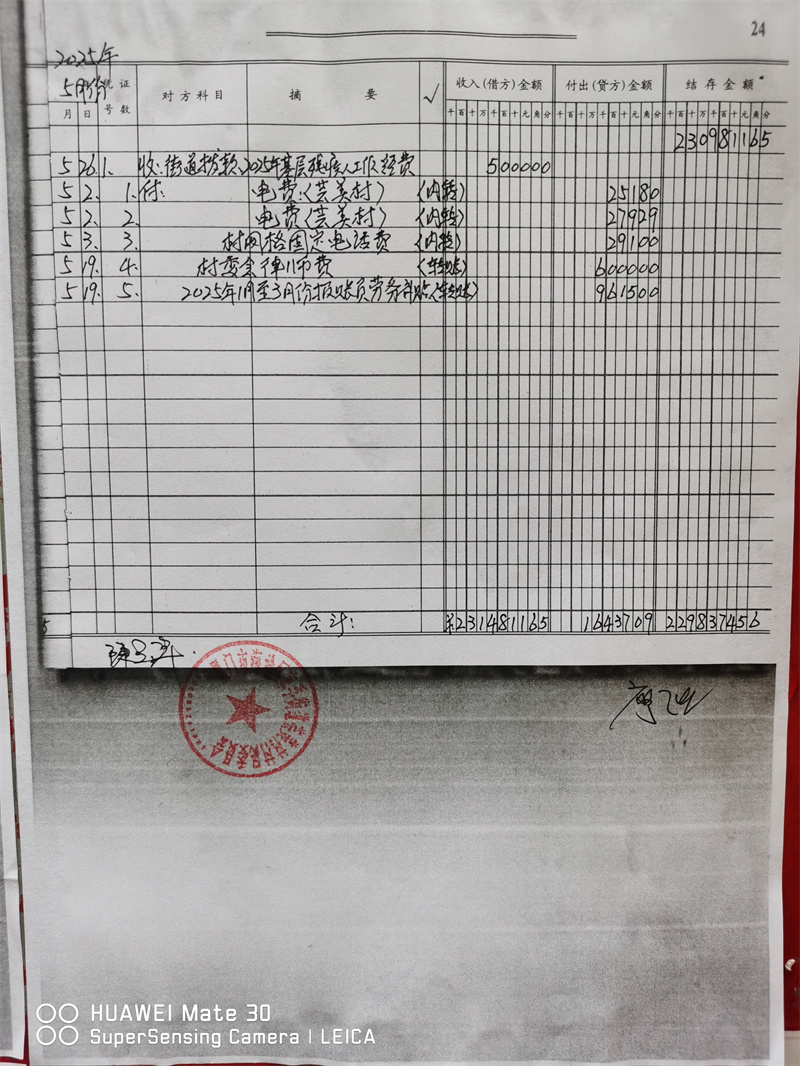 24
2025年
5月份 凭证号数 对方科目 摘要 √ 收入(借方)金额 付出(贷方)金额 结存金额
月 日 千百十万千百十元角分 千百十万千百十元角分 千百十万千百十元角分
230981165
5 26. 1. 收:街道拨款、2025年基层残疾人工作经费 500000
5 2. 1. 付: 电费:(芸美村) (内转) 25180
5 2. 2. 电费(芸美村) (内转) 27929
5 3. 3. 村网格固定电话费 (内转) 29100
5 19. 4. 村委会律师费 (转账) 600000
5 19. 5. 2025年1月至3月份报账员劳务补贴(转账) 961500
合计: 231481165 1643709 229837456
HUAWEI Mate 30
SuperSensing Camera | LEICA